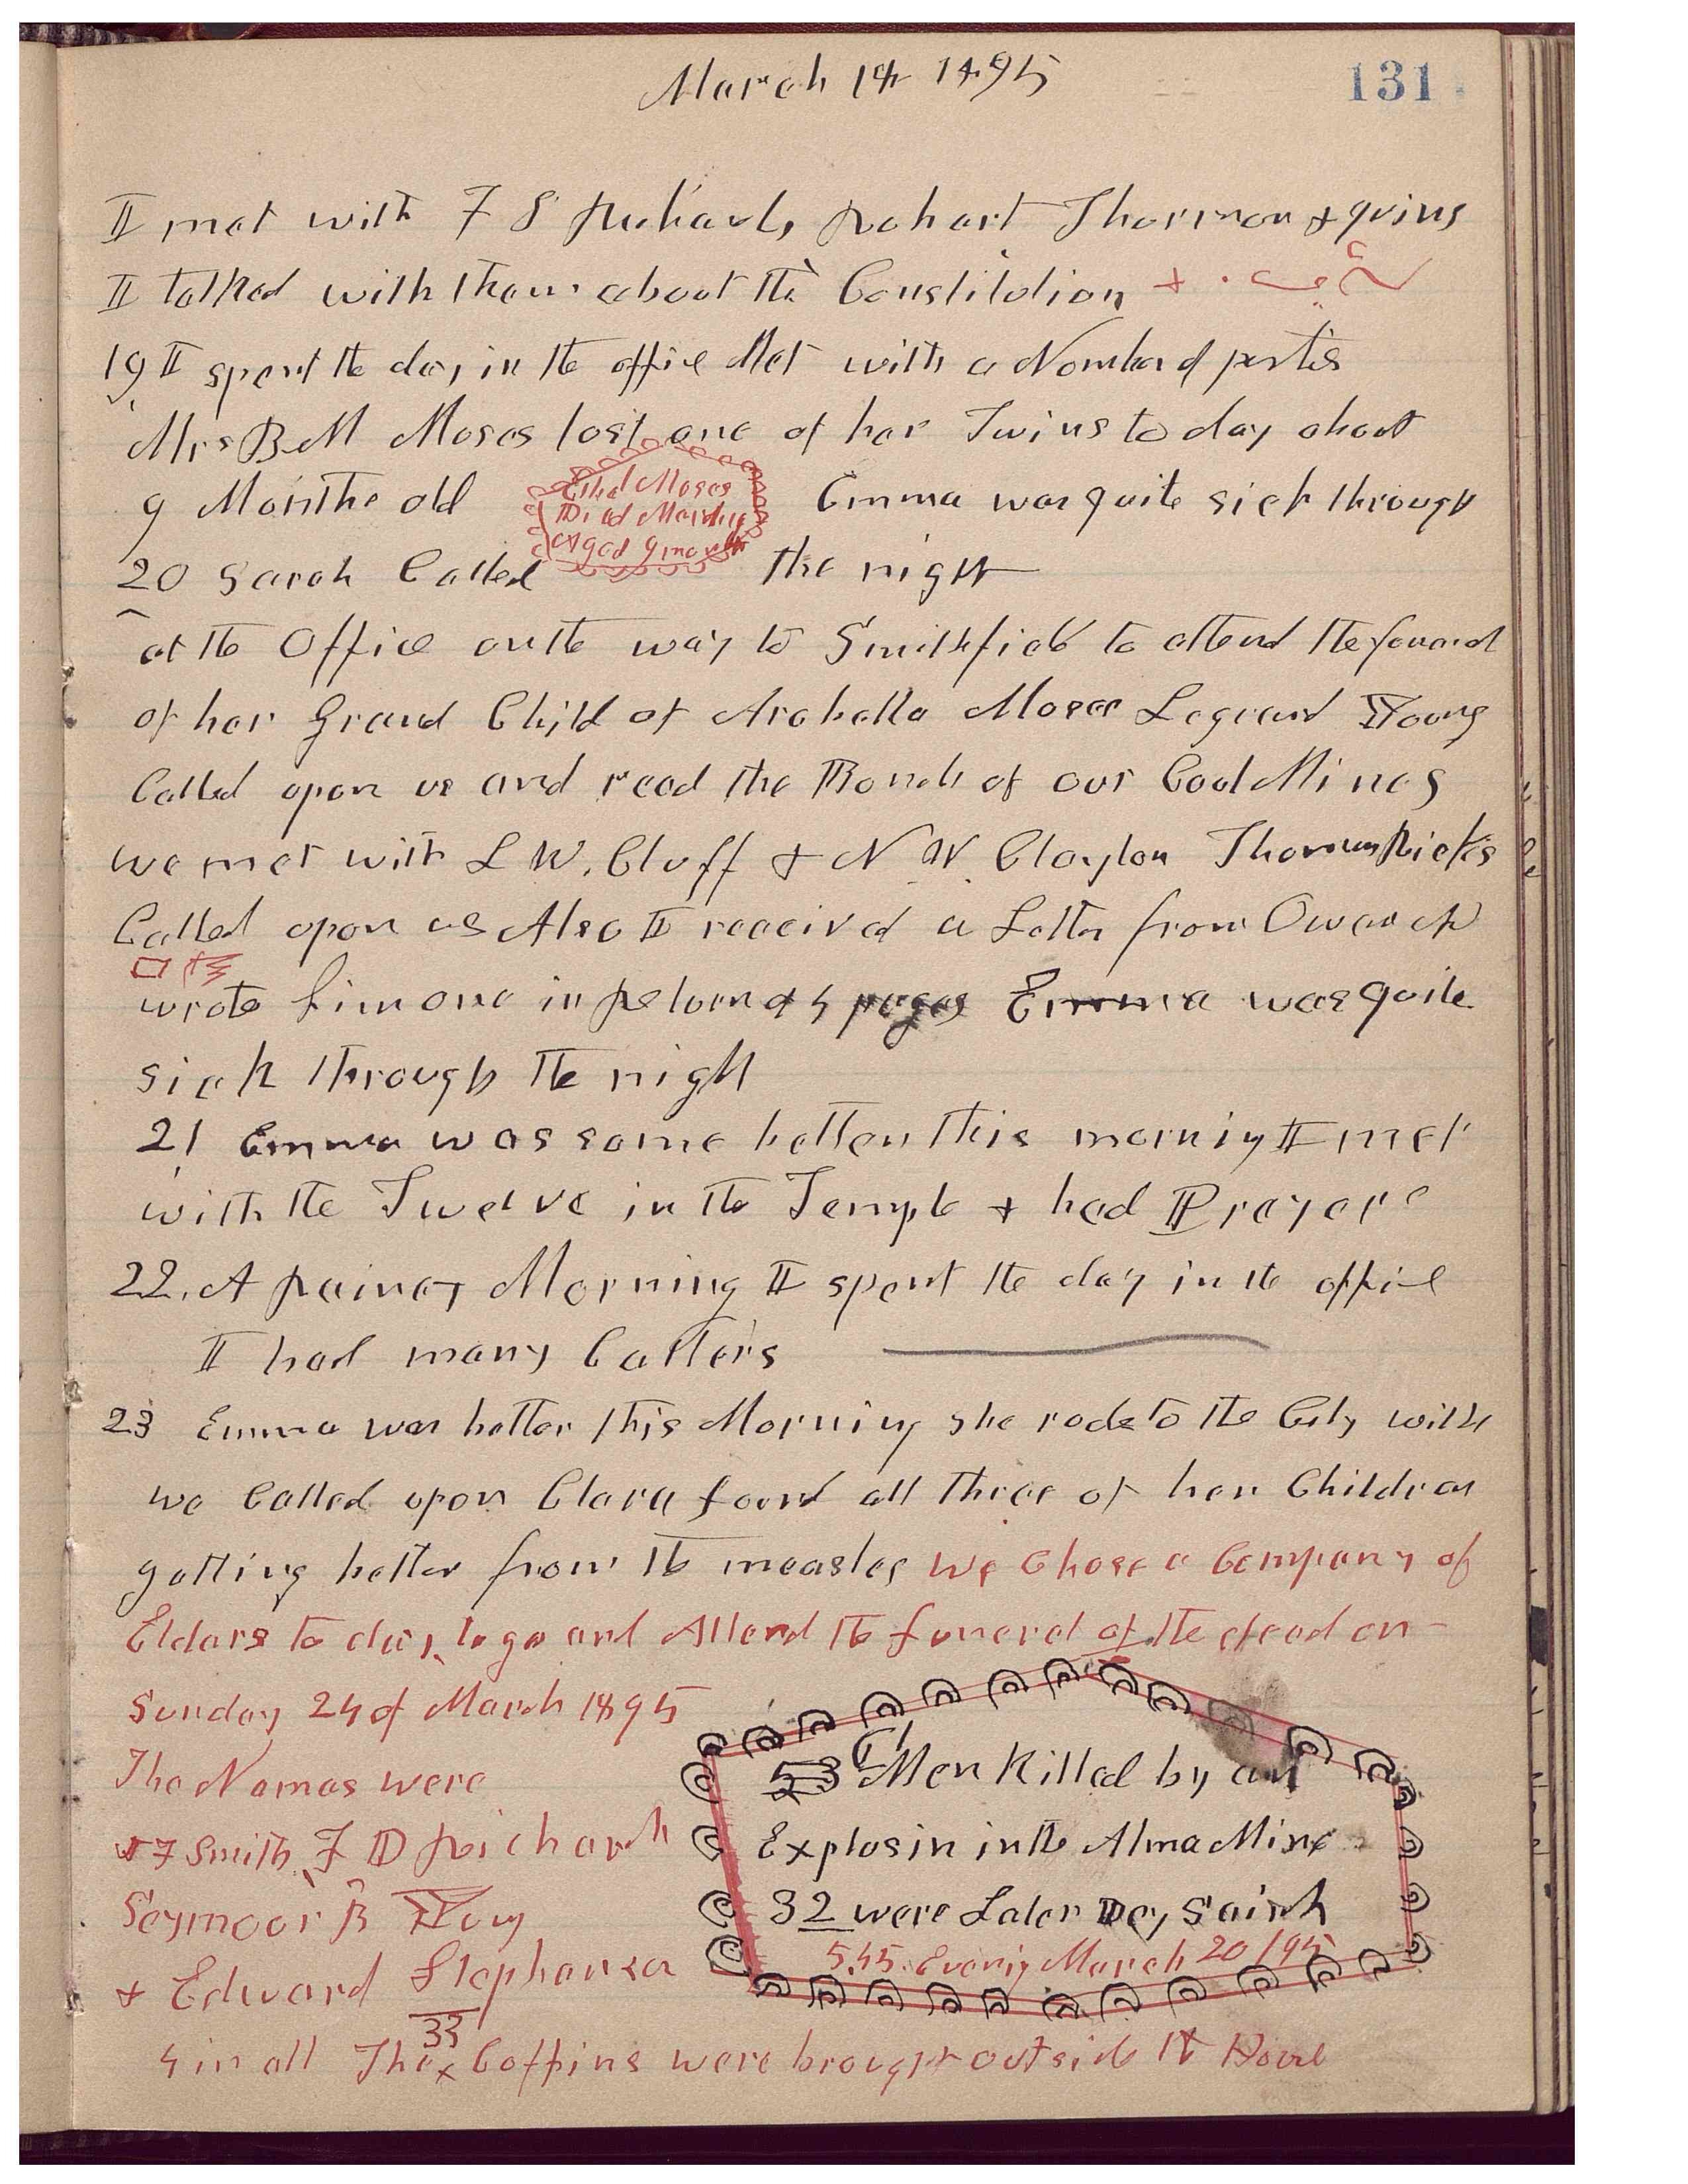 March 18, 1895
131
I met with F S Richards, Robert Thurman & quins
I talked with them about the Constitution +
19 I spent the day in the office Met with a Number of parties
Mrs B M Moses lost one of her Twins to day about
9 Months old
Ethel Moses
Died March 19
Aged 9 months
Emma was quite sick through
the night
20 Sarah Called
at the Office on the way to Smithfield to attend the funeral
of her Grand Child of Arabella Moses Legrand Young
Called upon us and read the Bonds of our Coal Mines
we met with L W. Cluff & N. W. Clayton Thomas Ricks
Called upon us Also I received a Letter from Owen &
wrote him one in Return of 4 pages Emma was quite
sick through the night
21 Emma was some better this morning I met
with the Twelve in the Temple & had Prayers
22. A Rainey Morning I spent the day in the office
I had many Callers
23 Emma was better this Morning she rode to the City with
we Called upon Clara found all three of her Children
getting better from the measles we Chose a Company of
Elders to day, to go and Attend the funeral of the dead on
Sunday 24 of March 1895
The Names were
J F Smith, F D Richards
Seymoor B Young
& Edward Stephenson
61
53 Men Killed by an
Explosin in the Alma Mine
32 were Later Day Saints
5.45. Evenig March 20 /95
33
4 in all The x Coffins were brought outside the House